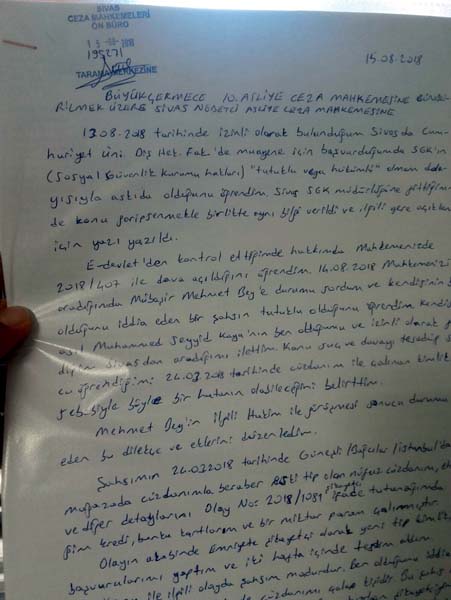 SİVAS
CEZA MAHKEMELERİ
ÖN BÜRO
195271
TARAMA MERKEZİNE
15.08.2018
BÜYÜKÇERMECE 10. ASLİYE CEZA MAHKEMESİNE
RİLMEK ÜZERE SİVAS NÖBETCİ ASLİYE CEZA MAHKEMESİNE
13.08.2018 tarihinde izinli olarak bulunduğum Sivas'da Cum-
huriyet Üni. Diş Hek. Fak.'de muayene için başvurduğumda SGK'ın
(Sosyal Güvenlik Kurumu hakları) "tutuklu veya hükümlü" olmam dola-
yısıyla askıda olduğunu öğrendim. Sivas SGK müdürlüğüne gittiğim
de konu garipsenmekle birlikte aynı bilgi verildi ve ilgili yere
için yazı yazıldı.
E-devlet'den kontrol ettiğimde hakkımda Mahkemenizde
2018/407 ile dava açıldığını öğrendim. 14.08.2018 Mahkemenizi
aradığımda Mübaşir Mehmet Bey'e durumu sordum ve kendisinin
olduğunu iddia eden bir şahsın tutuklu olduğunu öğrendim.
asıl Muhammed Seyyid Kaya'nın ben olduğumu ve izinli olarak
Sivas'dan aradığımı ilettim. Konu suç ve davayı tesadüf
öğrendiğimi 24.03.2018 tarihinde cüzdanım ile çalınan kimlik
sebebiyle böyle bir hatanın olabileceğini belirttim.
Mehmet Bey'in ilgili Hakim ile görüşmesi sonucu durumu
eden bu dilekçe ve eklerini düzenledim.
Şahsımın 24.03.2018 tarihinde Güneşli/Bağcılar/İstanbul'da
mağazada cüzdanımla beraber eski tip olan nüfus cüzdanım,
ve diğer detaylarını Olay No: 2018/1081 ifade tutanağında
kredi, banka kartlarım ve bir miktar param çalınmıştır.
Olayın akabinde Emniyete şikayetçi olarak yeni tip kimlik
başvurularımı yaptım ve iki hafta içinde teslim aldım.
ile ilgili olayda şahsım mağdurdur. Ben olduğunu iddia
cüzdanımı çalan kişidir.